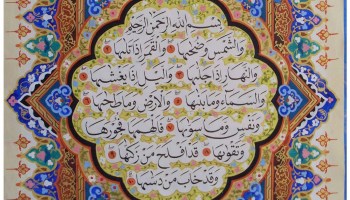 بِسْمِ اللهِ الرَّحْمٰنِ الرَّحِيمِ
وَالشَّمْسِ وَضُحٰيهَا وَالْقَمَرِ إِذَا تَلٰيهَا
وَالنَّهَارِ إِذَا جَلّٰيهَا وَالَّيْلِ إِذَا يَغْشٰيهَا
وَالسَّمَآءِ وَمَا بَنٰيهَا وَالْأَرْضِ وَمَا طَحٰيهَا
وَنَفْسٍ وَمَا سَوّٰيهَا فَأَلْهَمَهَا فُجُورَهَا
وَتَقْوٰيهَا قَدْ أَفْلَحَ مَنْ زَكّٰيهَا
وَقَدْ خَابَ مَنْ دَسّٰيهَا